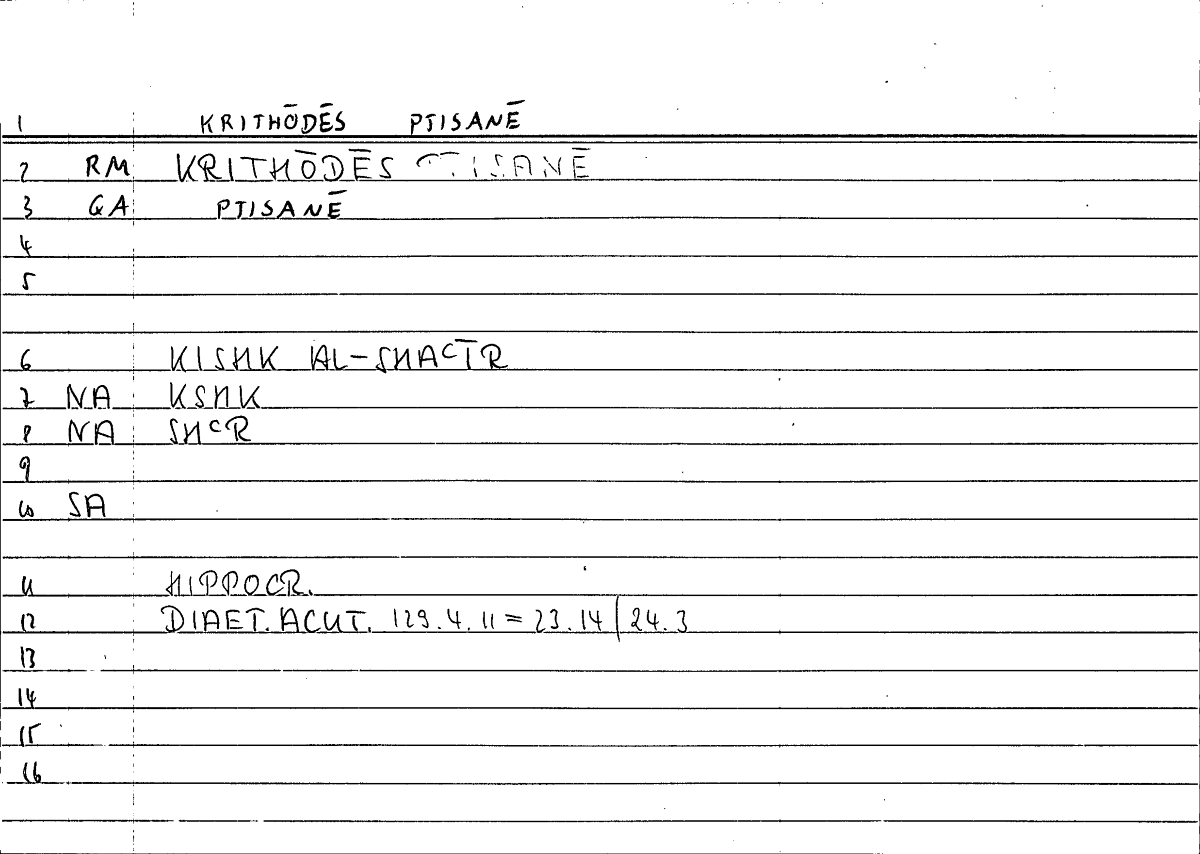 1 KRITHŌDĒS PTISANĒ
2 RM KRITHŌDĒS PTISANĒ
3 GA PTISANĒ
4
5
6 KISHK AL-SHAʿĪR
7 NA KSHK
8 NA SHʿR
9
10 SA
11 HIPPOCR.
12 DIAET. ACUT. 129.4.11 = 23.14 | 24.3
13
14
15
16